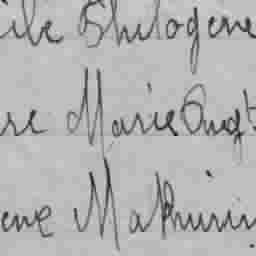 ile Philogene
re Marie Aug.te
ene Mathurin